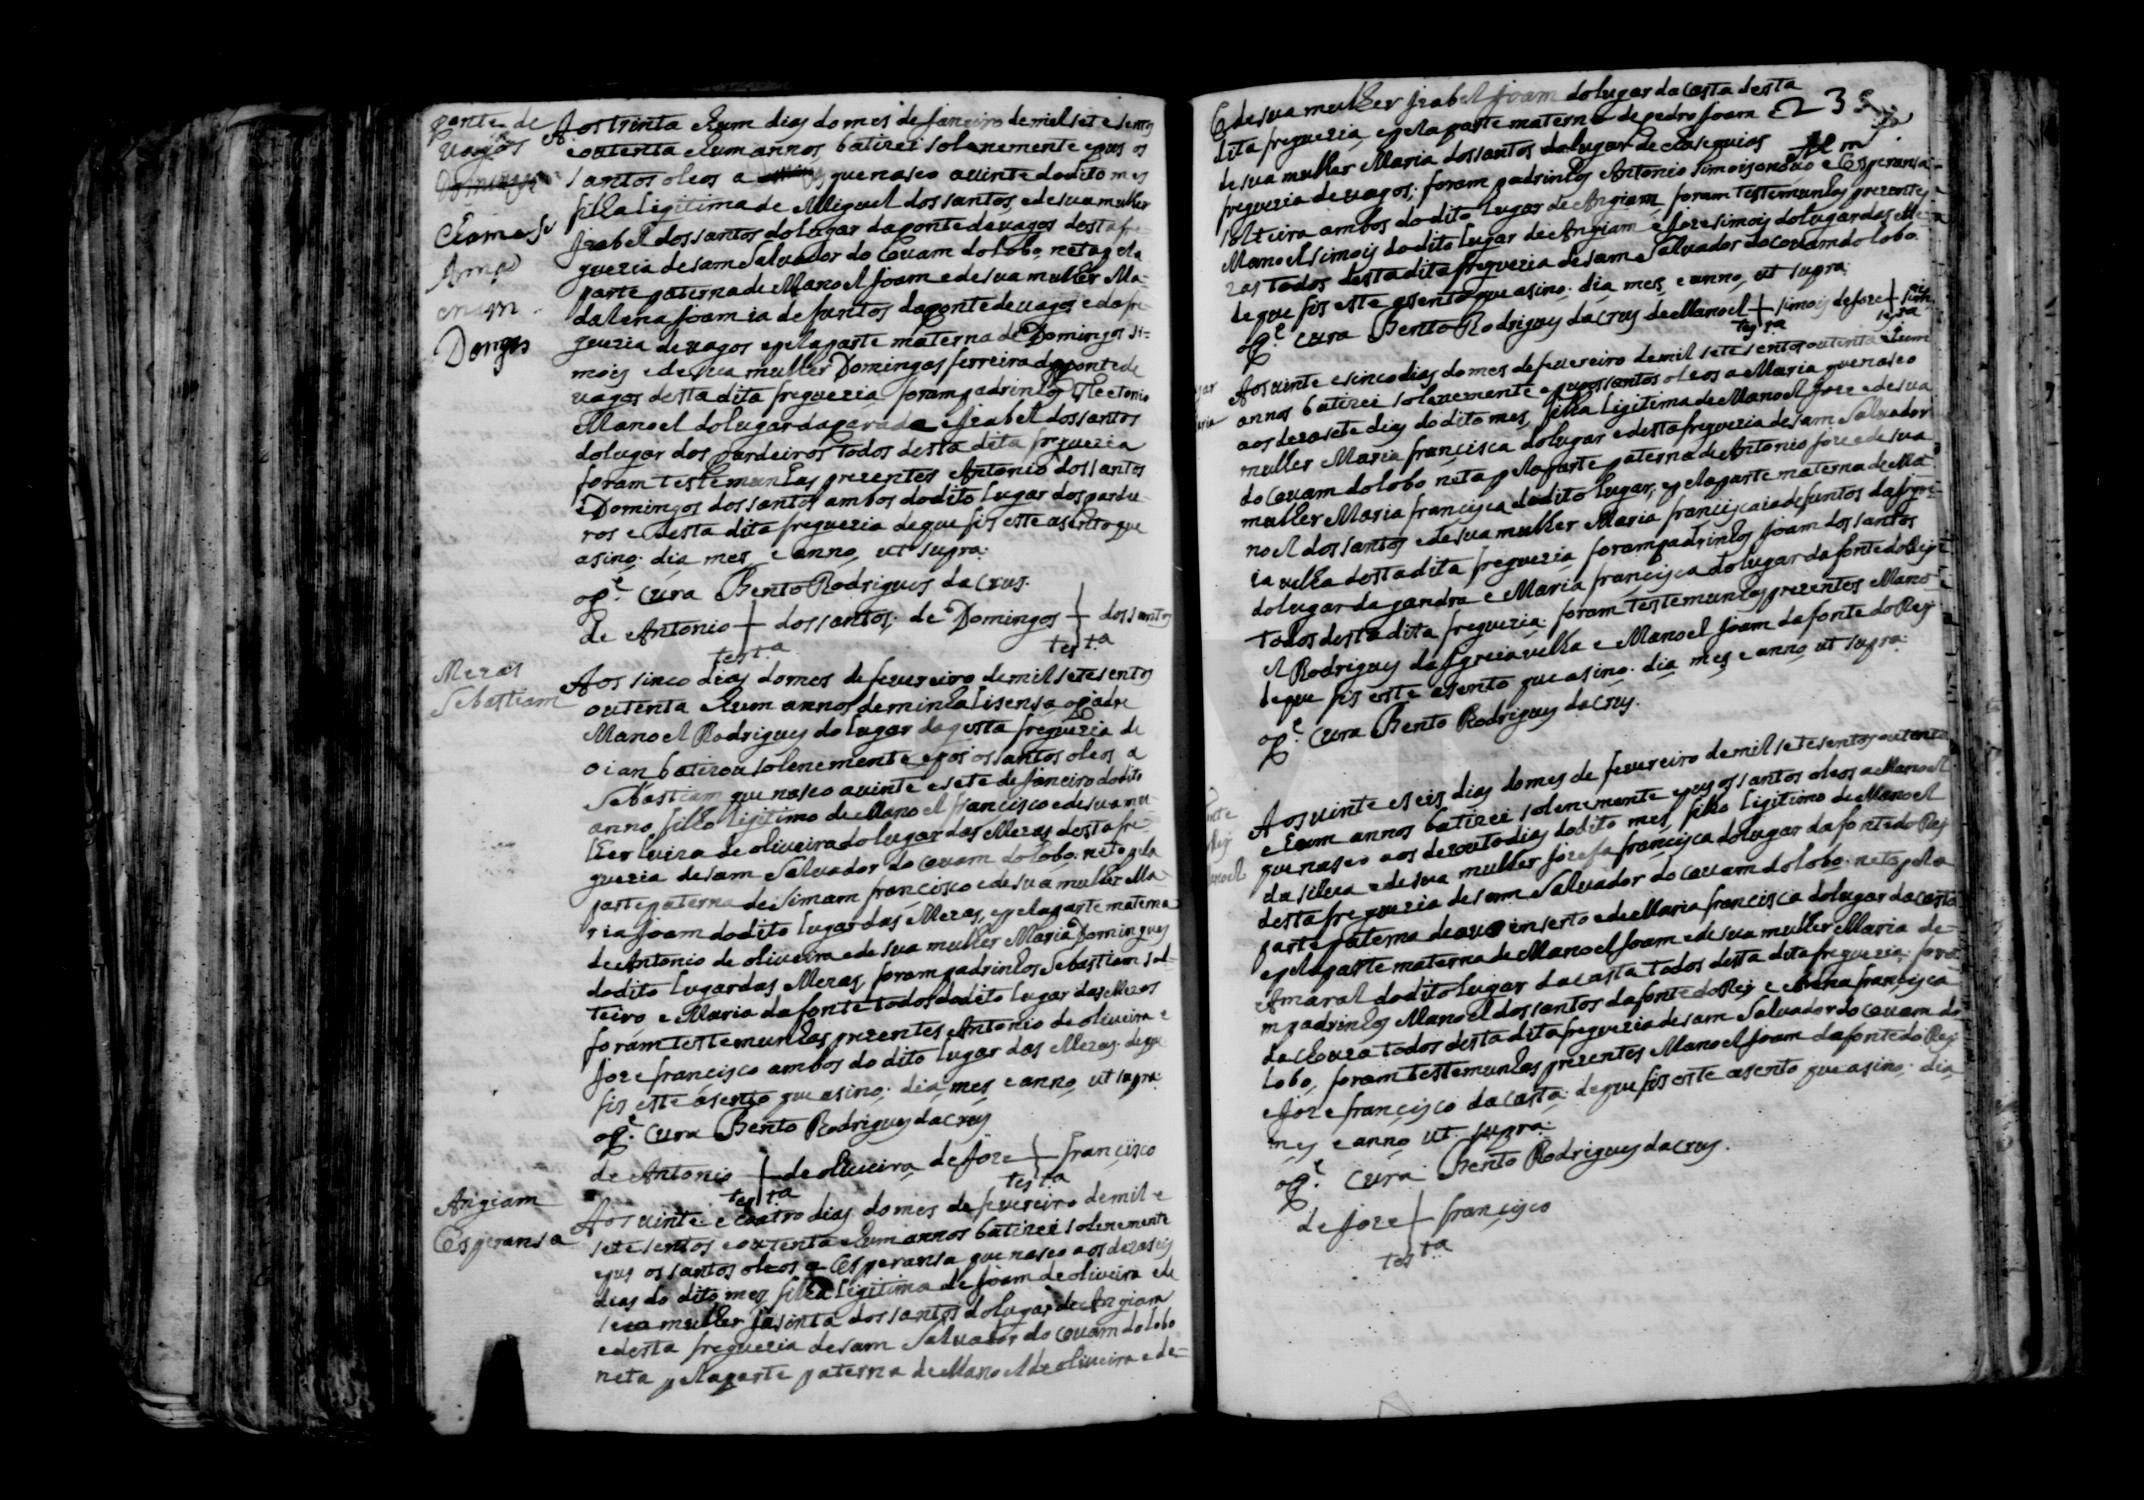 ponte de
vagos
Chamase
Dongos
Aos trinta ehum dias do mes de Janeiro de mil sete sentos
eoutenta ehum annos batizei solenemente epus os
santos oleos a que nasco a vinte do dito mes
filha ligitima de Miguel dos santos, e de sua mulher
Izabel dos santos do lugar da ponte de vagos desta fre-
guezia de sam Salvador do Couam do lobo, neta pela
parte paterna de Manoel Joam e de sua mulher Ma-
dalena Joam ia defuntos da ponte de vagos e da fre
guezia de vagos epela parte materna de Domingos si-
mois e de sua mulher Domingas ferreira da ponte de
vagos desta dita freguezia foram padrinhos Thetonio
Manoel do lugar da parada e Izabel dos santos
do lugar dos pardeiros todos desta dita freguezia
foram testemunhas prezentes Antonio dos santos
e Domingos dos santos ambos do dito lugar dos pardei
ros e desta dita freguezia de que fis este asento que
asino. dia mes, e anno, ut supra.
o Pe. Cura Bento Rodrigues da Crus.
de Antonio + dos santos. de Domingos + dos santos
testa testa
Mezas
Sebastiam
Aos sinco dias do mes de fevereiro de mil sete sentos
outenta ehum annos de minha lisensa o padre
Manoel Rodrigues do lugar da gesta freguezia de
oian batizou solenemente epos os santos oleos a
Sebastiam que nasco a vinte e sete de Janeiro do dito
anno, filho ligitimo de Manoel francisco e de sua mu
lher Luiza de oliveira do lugar das Mezas desta fre-
guezia de sam Salvador do Couam do lobo. neto pela
parte paterna de Simam francisco e de sua mulher Ma-
ria Joam do dito lugar das Mezas, epela parte materna
de Antonio de oliveira e de sua mulher Maria Domingues
do dito lugar das Mezas, foram padrinhos Sebastiam sol-
teiro e Maria da fonte todos do dito lugar das Mezas
foram testemunhas prezentes Antonio de oliveira e
Joze francisco ambos do dito lugar das Mezas. de que
fis este asento que asino. dia, mes e anno, ut supra.
o Pe. Cura Bento Rodrigues da Crus
de Antonio + de oliveira, de Joze + francisco
testa testa
Angiam
Esperansa
Aos vinte e coatro dias do mes de fevereiro de mil e
sete sentos e outenta ehum annos batizei solenemente
epus os santos oleos a Esperansa que nasco aos dezaseis
dias do dito mes filha ligitima de Joam de oliveira e de
sua mulher Jasinta dos santos do lugar de Angiam
e desta freguezia de sam Salvador do Couam do lobo
neta pela parte paterna de Manoel de oliveira e de-
E de sua mulher Izabel Joam do lugar da Casta desta
dita freguezia, epela parte materna de pedro Joam 235
de sua mulher Maria dos santos do lugar de
freguezia de vagos. foram padrinhos Antonio simois e Esperansa
solteira ambos do dito lugar de Angiam, foram testemunhas prezentes
Manoel simois do dito lugar de Angiam e Joze simois do lugar das Me-
zas todos desta dita freguezia de sam Salvador do Couam do lobo.
de que fis este asento que asino. dia mes, e anno, ut supra.
o Pe. Cura Bento Rodrigues da Crus de Manoel + simois de Joze + simois
testa testa
Aos vinte e sinco dias do mes de fevereiro de mil sete sentos outenta ehum
annos batizei solenemente epus os santos oleos a Maria que nasco
aos dezasete dias do dito mes, filha ligitima de Manoel Joze e de sua
mulher Maria francisca do lugar e desta freguezia de sam Salvador
do Couam do lobo neta pela parte paterna de Antonio Joze e de sua
mulher Maria francisca do dito lugar, epela parte materna de Ma-
noel dos santos e de sua mulher Maria francisca ia defuntos da Igrei-
ia velha desta dita freguezia foram padrinhos Joam dos santos
do lugar da gandra e Maria francisca do lugar da fonte do Rej
todos desta dita freguezia. foram testemunhas prezentes Mano-
el Rodrigues da Igreia velha e Manoel Joam da fonte do Rej
de que fis este asento que asino. dia mes e anno ut supra.
o Pe. Cura Bento Rodrigues da Crus.
Aos vinte e seis dias do mes de fevereiro de mil sete sentos outenta
e hum annos batizei solenemente epus os santos oleos a Manoel
que nasco aos dezouto dias do dito mes, filho ligitimo de Manoel
da silva e de sua mulher Jozefa francisca do lugar da fonte do Rej
desta freguezia de sam Salvador do Couam do lobo. neto pela
parte paterna de avo inserto e de Maria francisca do lugar da Casta
epela parte materna de Manoel Joam e de sua mulher Maria de-
Amaral do dito lugar da casta todos desta dita freguezia. fora-
m padrinhos Manoel dos santos da fonte do Rej e francisca
da Chouza todos desta dita freguezia de sam Salvador do Couam do
Lobo, foram testemunhas prezentes Manoel Joam da fonte do Rej
e Joze francisco da casta. de que fis este asento que asino. dia
mes e anno ut supra.
o Pe. Cura Bento Rodrigues da Crus.
de Joze + francisco
testa